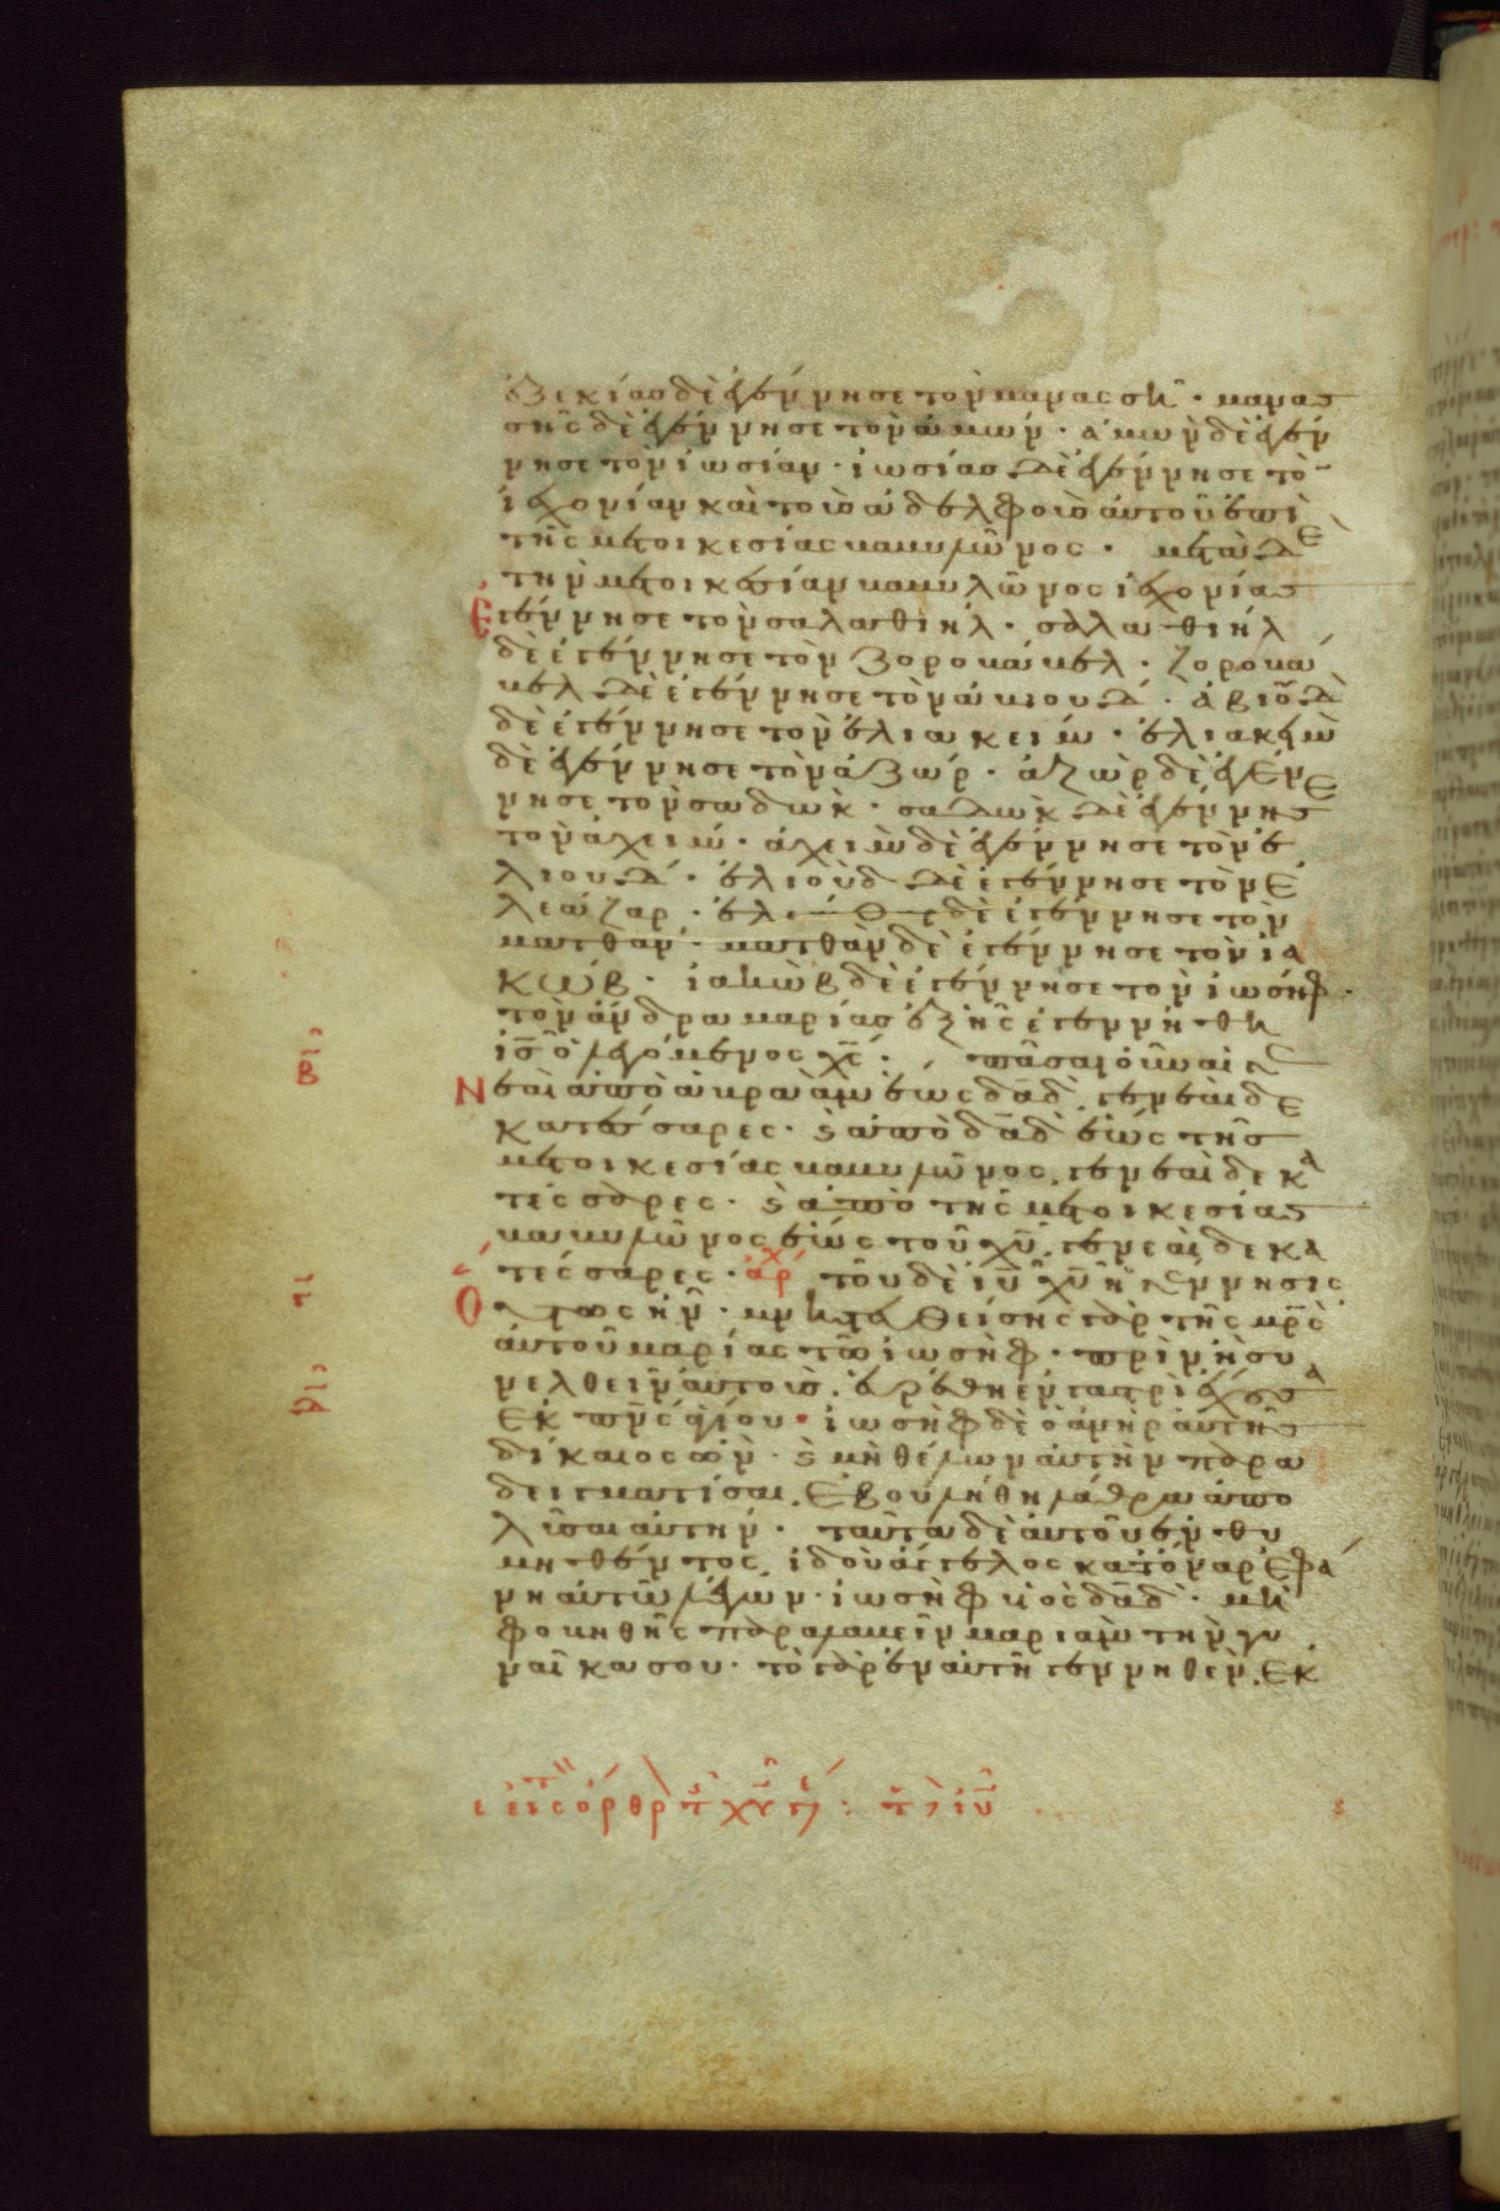 ὀζεκίας δὲ ἐγέννησε τὸν μανασσῆ · μανας
σῆς δὲ ἐγέννησε τὸν ἀμών · ἀμὼν δὲ ἐγέν
νησε τὸν ἰωσίαν · ἰωσίας δὲ ἐγέννησε τὸ
ἰεχονίαν καὶ τοὺς ἀδελφοὺς αὐτοῦ ἐπὶ
τῆς μετοικεσίας βαβυλῶνος · μετὰ δὲ
τὴν μετοικεσίαν βαβυλῶνος ἰεχονίας
ἐγέννησε τὸν σαλαθιήλ · σαλαθιὴλ
δὲ ἐγέννησε τὸν ζοροβάβελ · ζοροβά
βελ δὲ ἐγέννησε τὸν ἀβιούδ · ἀβιοὺδ
δὲ ἐγέννησε τὸν ἐλιακείμ · ἐλιακεὶμ
δὲ ἐγέννησε τὸν ἀζώρ · ἀζὼρ δὲ ἐγέν
νησε τὸν σαδώκ · σαδὼκ δὲ ἐγέννησε
τὸν ἀχείμ · ἀχεὶμ δὲ ἐγέννησε τὸν ἐ
λιούδ · ἐλιοὺδ δὲ ἐγέννησε τὸν ἐ
λεάζαρ · δὲ ἐγέννησε τὸν
ματθάν · ματθὰν δὲ ἐγέννησε τὸν ἰα
κώβ · ἰακὼβ δὲ ἐγέννησε τὸν ἰωσήφ ·
τὸν ἄνδρα μαρίας ἐξ ἧς ἐγεννήθη
ι̅ς̅ ὁ λεγόμενος χ̅ς̅ · πᾶσαι οὖν αἱ γε
νεαὶ ἀπὸ ἀβραὰμ ἕως δ̅α̅δ̅ γενεαὶ δε
κατέσσαρες · ϗ ἀπὸ δ̅α̅δ̅ ἕως τῆς
μετοικεσίας βαβυλῶνος γενεαὶ δεκα
τέσσαρες · ϗ ἀπὸ τῆς μετοικεσίας
βαβυλῶνος ἕως τοῦ χ̅υ̅ γενεαὶ δεκα
τέσσαρες · ἀρχ τοῦ δὲ ι̅υ̅ χ̅υ̅ ἡ γέννησις
οὕτως ἦν · μνηστευθείσης γὰρ τῆς μ̅ρ̅ς̅
αὐτοῦ μαρίας τῷ ἰωσὴφ · πρὶν ἢ συ
νελθεῖν αὐτοὺς εὑρέθη ἐν γαστρὶ ἔχουσα
ἐκ π̅ν̅ς̅ ἁγίου · ἰωσὴφ δὲ ὁ ἀνὴρ αὐτῆς
δίκαιος ὢν · ϗ μὴ θέλων αὐτὴν παρα
δειγματίσαι ἐβουλήθη λάθρα ἀπο
λῦσαι αὐτήν · ταῦτα δὲ αὐτοῦ ἐνθυ
μηθέντος ἰδοὺ ἄγγελος κατ᾽ ὄναρ ἐφά
νη αὐτῷ λέγων · ἰωσὴφ υἱὸς δ̅α̅δ̅ · μὴ
φοβηθῇς παραλαβεῖν μαριὰμ τὴν γυ
ναῖκα σου · τὸ γὰρ ἐν αὐτῇ γεννηθὲν ἐκ
βι
γι
βι